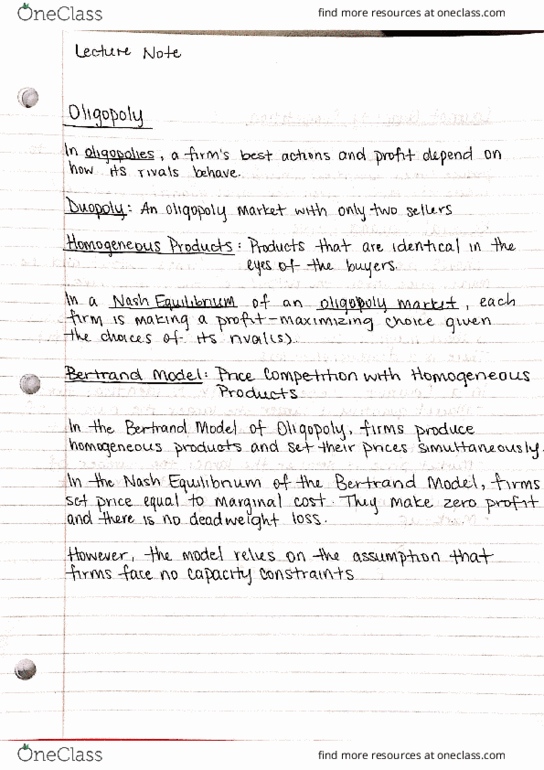 OneClass
find more resources at oneclass.com
Lecture Note
Oligopoly
In oligopolies, a firm's best actions and profit depend on
how its rivals behave.
Duopoly: An oligopoly market with only two sellers
Homogeneous Products: Products that are identical in the
eyes of the buyers.
In a Nash Equilibrium of an oligopoly market, each
firm is making a profit-maximizing choice given
the choices of its rival(s).
Bertrand Model: Price Competition with Homogeneous
Products
In the Bertrand Model of Oligopoly, firms produce
homogeneous products and set their prices simultaneously.
In the Nash Equilibrium of the Bertrand Model, firms
set price equal to marginal cost. They make zero profit
and there is no deadweight loss.
However, the model relies on the assumption that
firms face no capacity constraints
OneClass
find more resources at oneclass.com